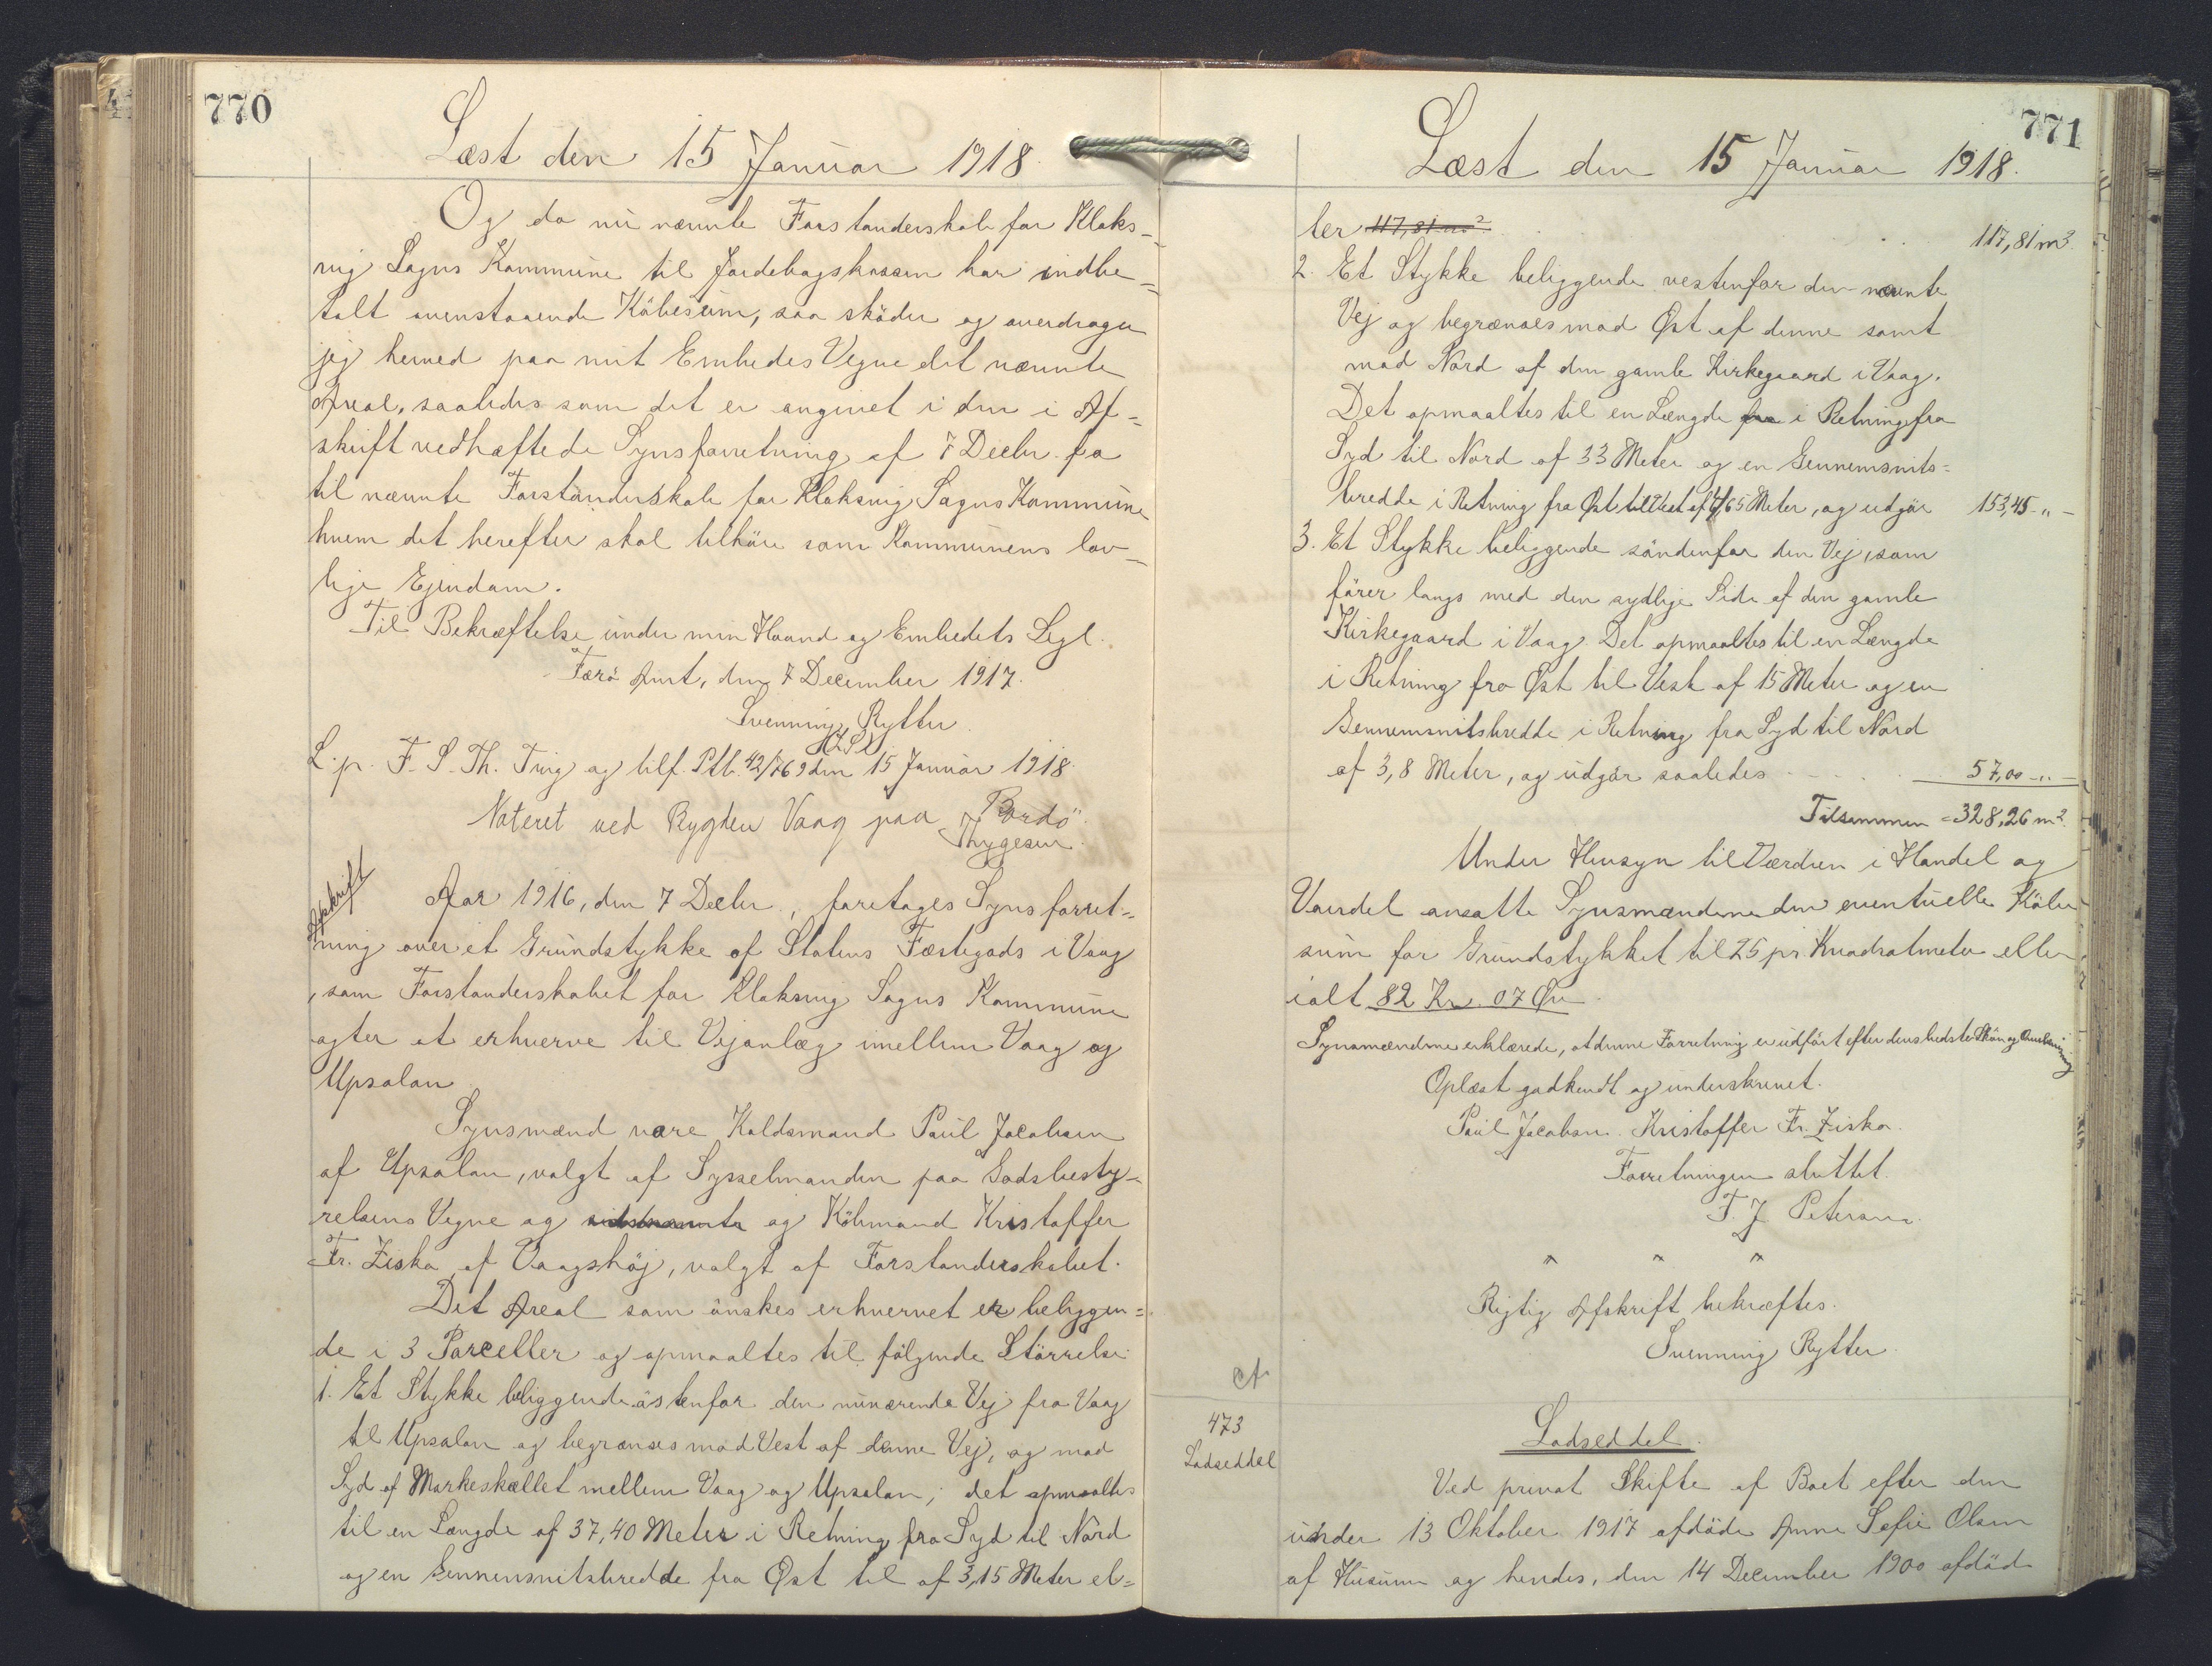 770
Læst den 15 Januar 1918.
Og da nu nævnte Forstanderskab for Klaks-
vig Sogns Kommune til Jordebogskassen har indbe-
talt ovenstaaende Købesum, saa skøder og overdrager
jeg herved paa mit Embedes Vegne det nævnte
Areal, saaledes som det er angivet i den i Af-
skrift vedhæftede Synsforretning af 7 Decbr. f.a.
til nævnte Forstanderskab for Klaksvig Sogns Kommune
hvem det herefter skal tilhöre som Kommunens lov-
lige Ejendom.
Til Bekræftelse under min Haand og Embedets Segl.
Færö Amt, den 7 December 1917.
Svenning Rytter
(LS)
L. p. F. S. Th. Ting og tilf. Ptb. 42/769 den 15 Januar 1918
Noteret ved Bygden Vaag paa Bordö.
Thygesen.
Afskrift
Aar 1916, den 7 Decbr., foretages Synsforret-
ning over et Grundstykke af Statens Fæstegods i Vaag
, som Forstanderskabet for Klaksvig Sogns Kommune
agter at erhverve til Vejanlæg imellem Vaag og
Upsalan
Synsmænd vare Kaldsmand Paul Jacobsen
af Upsalan, valgt af Sysselmanden paa Godsbesty-
relsens Vegne og sidstnævnte og Köbmand Kristoffer
Fr. Ziska af Vaagshöj, valgt af Forstanderskabet.
Det Areal som önskes erhvervet er beliggen-
de i 3 Parceller og opmaaltes til følgende Störrelse
1. Et Stykke beliggende østenfor den nuværende Vej fra Vaag
til Upsalan og begrænses mod Vest af denne Vej, og mod
Syd af Markeskællet mellem Vaag og Upsalan; det opmaaltes
til en Længde af 37,40 Meter i Retning fra Syd til Nord
og en Gennemsnitsbredde fra Øst til af 3,15 Meter el-
771
Læst den 15 Januar 1918.
ler 117,81 m² 117,81 m².
2. Et Stykke beliggende vestenfor den nævnte
Vej og begrænses mod Øst af denne samt
mod Nord af den gamle Kirkegaard i Vaag.
Det opmaaltes til en Længde fra i Retning fra
Syd til Nord af 33 Meter og en Gennemsnits-
bredde i Retning fra Øst til Vest af 4,65 Meter, og udgör 153,45 - " -
3. Et Stykke beliggende söndenfor den Vej, som
förer langs med den sydlige Side af den gamle
Kirkegaard i Vaag. Det opmaaltes til en Længde
i Retning fra Øst til Vest af 15 Meter og en
Gennemsnitsbredde i Retning fra Syd til Nord
af 3,8 Meter, og udgör saaledes 57,00 - " -
Tilsammen = 328,26 m².
Under Hensyn til Værdien i Handel og
Vandel ansatte Synsmændene den eventuelle Købe
sum for Grundstykket til 25 pr. Kvadratmeter eller
ialt 82 Kr. 07 Øre
Synsmændene erklærede, at denne Forretning er udfört efter deres bedste Skön og Overbevisning
Oplæst godkendt og underskrevet.
Paul Jacobsen. Kristoffer Fr. Ziska.
Forretningen sluttet.
F. J. Petersen.
" " "
Rigtig Afskrift bekræftes.
Svenning Rytter
473
Lodseddel
Lodseddel.
Ved privat Skifte af Boet efter den
under 13 Oktober 1917 afdöde Anne Sofie Olsen
af Husum og hendes, den 14 December 1900 afdöd